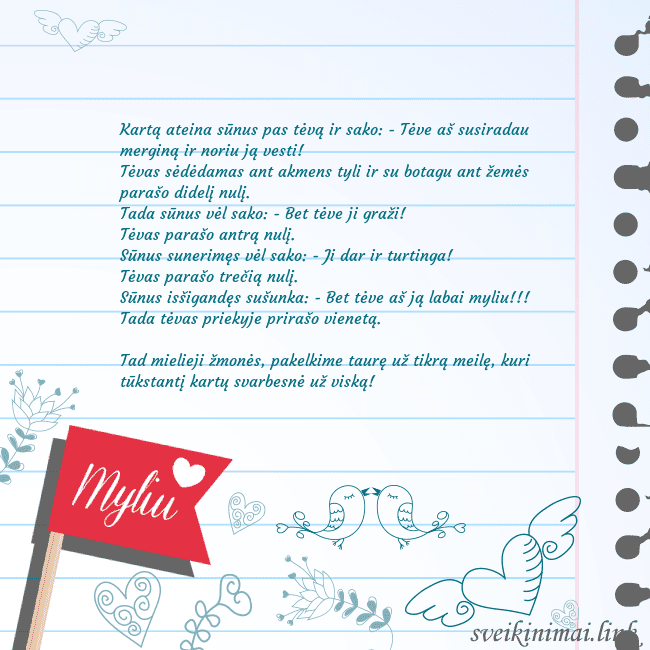 Kartą ateina sūnus pas tėvą ir sako: - Tėve aš susiradau
merginą ir noriu ją vesti!
Tėvas sėdėdamas ant akmens tyli ir su botagu ant žemės
parašo didelį nulį.
Tada sūnus vėl sako: - Bet tėve ji graži!
Tėvas parašo antrą nulį.
Sūnus sunerimęs vėl sako: - Ji dar ir turtinga!
Tėvas parašo trečią nulį.
Sūnus isšigandęs sušunka: - Bet tėve aš ją labai myliu!!!
Tada tėvas priekyje prirašo vienetą.
Tad mielieji žmonės, pakelkime taurę už tikrą meilę, kuri
tūkstantį kartų svarbesnė už viską!
Myliu
sveikinimai.link